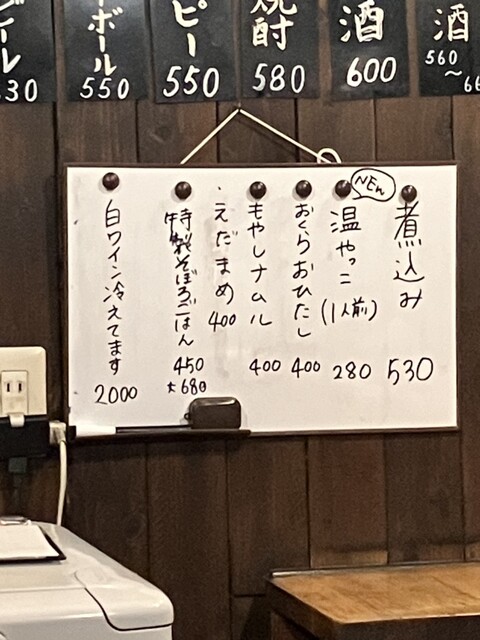 酒
560
〜
酒
600
焼酎
580
ピー
550
ーボール
550
ビール
煮込み
530
NEW
温やっこ
(1人前)
280
おくらおひたし
400
もやしナムル
400
えだまめ
400
特製そぼろごはん
450
大680
白ワイン冷えてます
2000